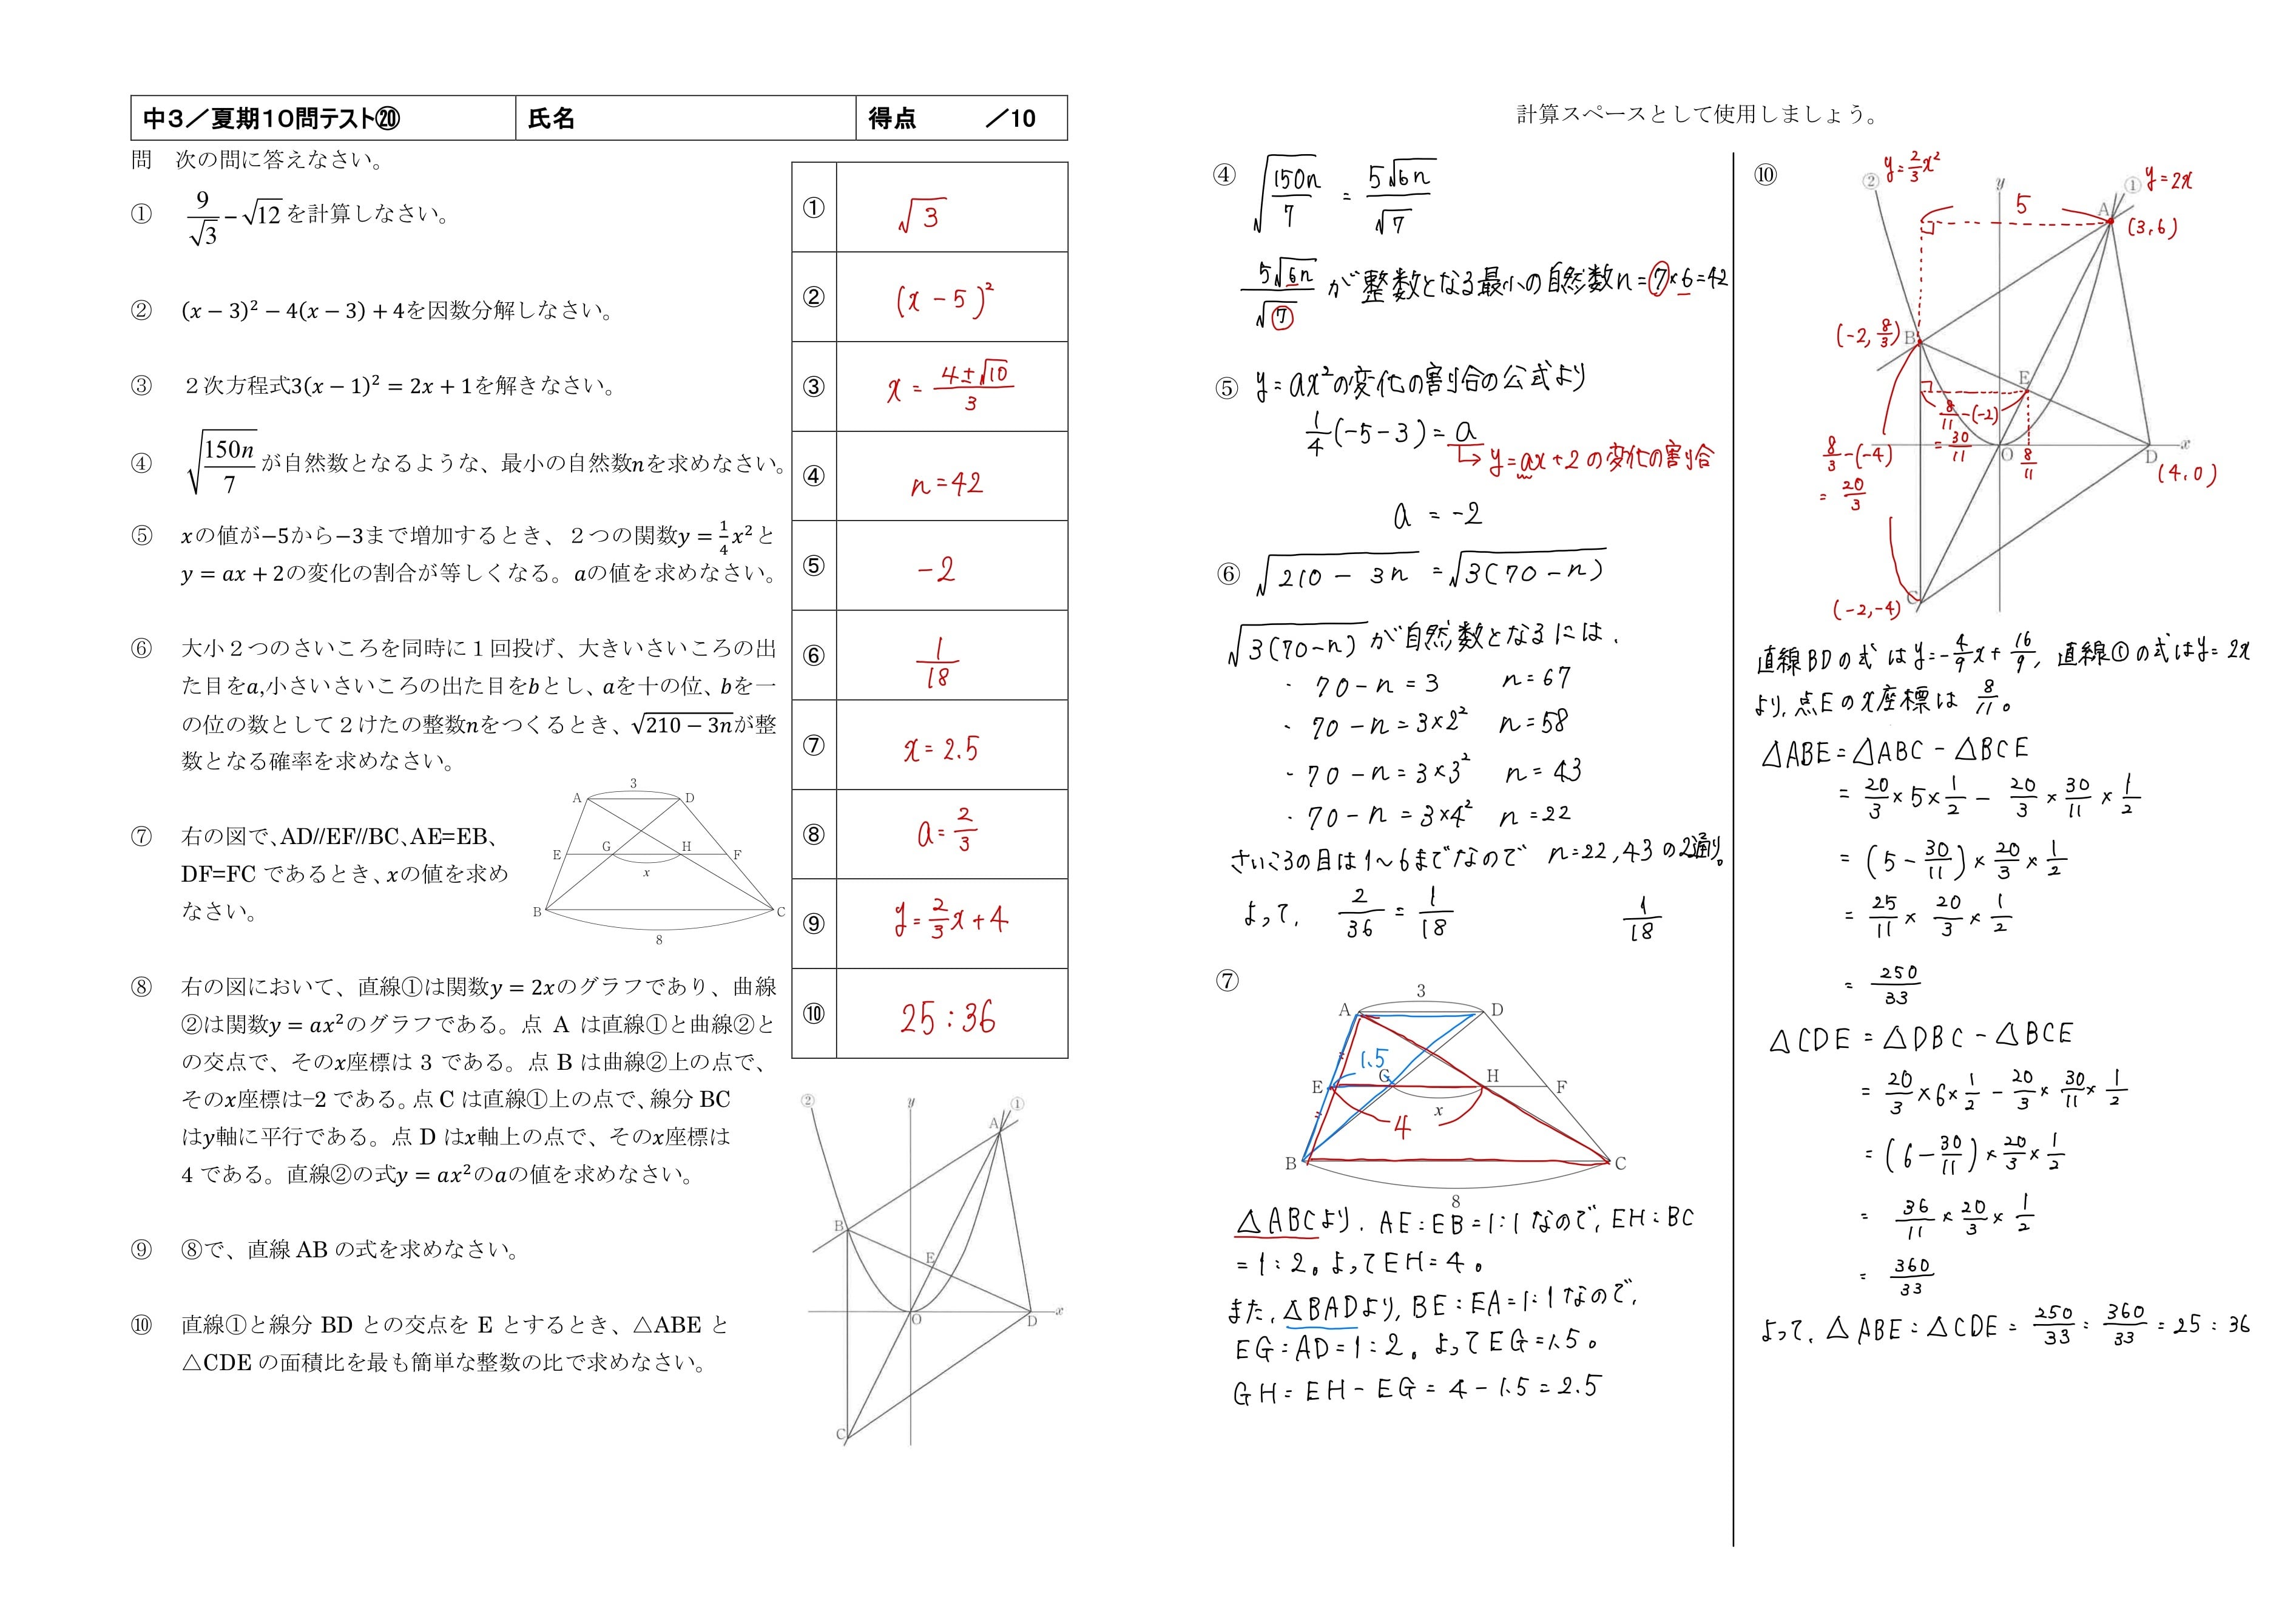 中3／夏期10問テスト⑳ 氏名 得点 ／10
問 次の問に答えなさい。
① 9/√3 − √12を計算しなさい。
② (x − 3)² − 4(x − 3) + 4を因数分解しなさい。
③ ２次方程式3(x − 1)² = 2x + 1を解きなさい。
④ √(150n/7) が自然数となるような、最小の自然数nを求めなさい。
⑤ xの値が−5から−3まで増加するとき、２つの関数y = 1/4 x²と
y = ax + 2の変化の割合が等しくなる。aの値を求めなさい。
⑥ 大小２つのさいころを同時に１回投げ、大きいさいころの出
た目をa,小さいさいころの出た目をbとし、aを十の位、bを一
の位の数として２けたの整数nをつくるとき、√(210 − 3n)が整
数となる確率を求めなさい。
⑦ 右の図で、AD//EF//BC、AE=EB、
DF=FC であるとき、xの値を求め
なさい。
3
A D
E G H F
x
B C
8
⑧ 右の図において、直線①は関数y = 2xのグラフであり、曲線
②は関数y = ax²のグラフである。点 A は直線①と曲線②と
の交点で、そのx座標は 3 である。点 B は曲線②上の点で、
そのx座標は−2 である。点 C は直線①上の点で、線分 BC
はy軸に平行である。点 D はx軸上の点で、そのx座標は
4 である。直線②の式y = ax²のaの値を求めなさい。
⑨ ⑧で、直線 AB の式を求めなさい。
⑩ 直線①と線分 BD との交点を E とするとき、△ABE と
△CDE の面積比を最も簡単な整数の比で求めなさい。
① √3
② (x − 5)²
③ x = (4±√10)/3
④ n=42
⑤ −2
⑥ 1/18
⑦ x = 2.5
⑧ a = 2/3
⑨ y = 2/3 x + 4
⑩ 25 : 36
② y ①
A
B
E
O D x
C
計算スペースとして使用しましょう。
④ √(150n/7) = 5√6n/√7
5√6n/√7 が整数となる最小の自然数n=7×6=42
⑤ y=ax²の変化の割合の公式より
1/4(−5−3)=a
↳ y=ax+2 の変化の割合
a = −2
⑥ √(210 − 3n) = √(3(70−n))
√(3(70−n)) が自然数となるには、
・ 70−n=3 n=67
・ 70−n=3×2² n=58
・ 70−n=3×3² n=43
・ 70−n=3×4² n=22
さいころの目は1〜6までなので n=22,43 の2通り。
よって、 2/36 = 1/18 1/18
⑦
3
A D
1.5
E G H F
x
4
B C
8
△ABCより、AE:EB=1:1なので、EH:BC
=1:2。よってEH=4。
また、△BADより、BE:EA=1:1なので、
EG:AD=1:2。よってEG=1.5。
GH=EH−EG=4−1.5=2.5
⑩
② y=2/3x² y ① y=2x
5
A (3,6)
(−2, 8/3) B
E
8/11−(−2)
= 30/11
8/3−(−4)
= 20/3
O 8/11 D x
(4,0)
(−2,−4) C
直線BDの式はy=−4/9x+16/9, 直線①の式はy=2x
より、点Eのx座標は 8/11。
△ABE=△ABC−△BCE
= 20/3×5×1/2 − 20/3×30/11×1/2
= (5−30/11)×20/3×1/2
= 25/11×20/3×1/2
= 250/33
△CDE=△DBC−△BCE
= 20/3×6×1/2 − 20/3×30/11×1/2
= (6−30/11)×20/3×1/2
= 36/11×20/3×1/2
= 360/33
よって、△ABE:△CDE= 250/33 : 360/33 = 25:36